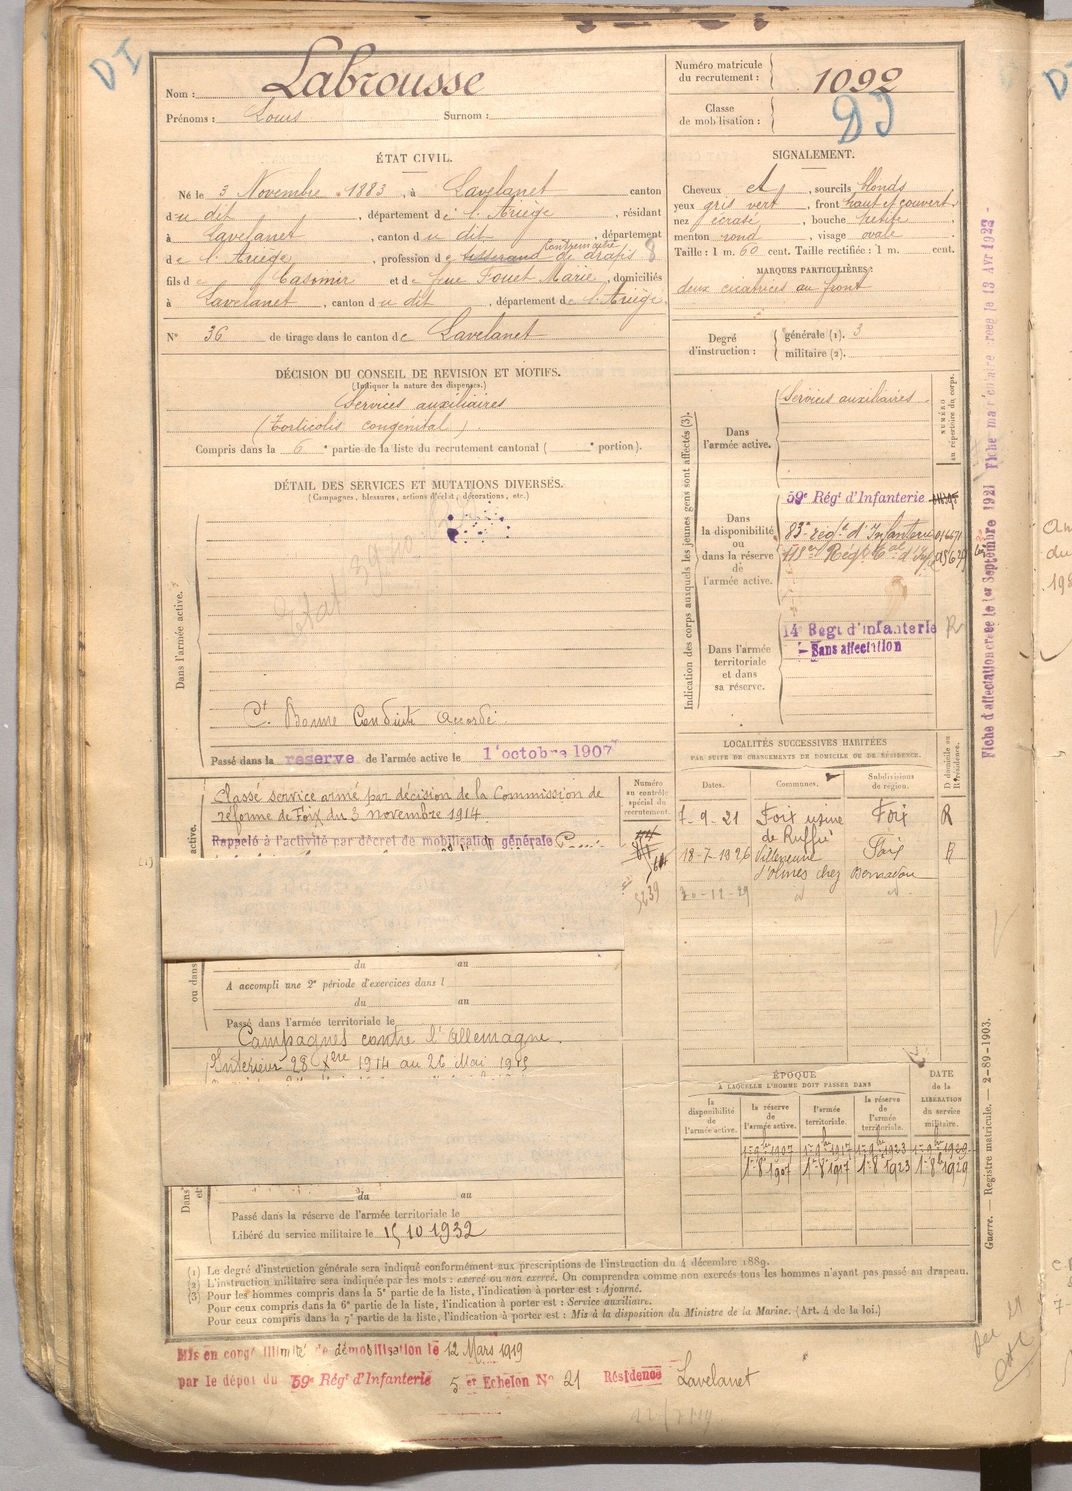 DI
Nom : Labrousse
Prénoms : Louis Surnom :
Numéro matricule du recrutement : 1092
Classe de mobilisation :
ÉTAT CIVIL.
Né le 3 Novembre 1883, à Lavelanet canton
du dit, département de l'Ariège, résidant
à Lavelanet, canton du dit, département
Contremaitre
de l'Ariège, profession de tisserand de draps 8
fils de Casimir et de feue Fouet Marie, domiciliés
à Lavelanet, canton du dit, département de l'Ariège.
N° 36 de tirage dans le canton de Lavelanet
SIGNALEMENT.
Cheveux et, sourcils blonds
yeux gris vert, front haut et couvert,
nez écrasé, bouche petite
menton rond, visage ovale
Taille : 1 m. 60 cent. Taille rectifiée : 1 m. cent.
MARQUES PARTICULIÈRES :
deux cicatrices au front
Degré d'instruction : générale (1). 3
militaire (2).
DÉCISION DU CONSEIL DE REVISION ET MOTIFS.
(Indiquer la nature des dispenses.)
Services auxiliaires
(Torticolis congenital).
Compris dans la 6e partie de la liste du recrutement cantonal ( e portion).
DÉTAIL DES SERVICES ET MUTATIONS DIVERSES.
(Campagnes, blessures, actions d'éclat, décorations, etc.)
Dans l'armée active.
Ct Bonne Conduite accordé
Passé dans la réserve de l'armée active le 1er octobre 1907
Indication des corps auxquels les jeunes gens sont affectés (3).
NUMÉRO au répertoire du corps.
Dans l'armée active.
Services auxiliaires.
Dans la disponibilité ou dans la réserve de l'armée active.
59e Régt d'Infanterie
83e régt d'Infanterie
Dans l'armée territoriale et dans sa réserve.
14e Régt d'infanterie
Sans affectation
Fiche d'affectation créée le 1er Septembre 1921 Fiche matriculaire créée le 13 Avr 1922
Classé service armé par décision de la Commission de
réforme de Foix du 3 novembre 1914.
Rappelé à l'activité par décret de mobilisation générale
Numéro au contrôle spécial du recrutement.
5239
LOCALITÉS SUCCESSIVES HABITÉES
PAR SUITE DE CHANGEMENTS DE DOMICILE OU DE RÉSIDENCE.
Dates. Communes. Subdivisions de région. D. domicile ou R. résidence.
7-9-21 Foix usine de Ruffié Foix R
18-7-1926 Villeneuve d'Olmes chez Bernadou Foix R
30-12-29 d° d°
du au
A accompli une 2e période d'exercices dans l
du au
Passé dans l'armée territoriale le
Campagnes contre l'Allemagne.
Intérieur 28 Xbre 1914 au 26 Mai 1915
ÉPOQUE
À LAQUELLE L'HOMME DOIT PASSER DANS
la disponibilité de l'armée active.
la réserve de l'armée active.
l'armée territoriale.
la réserve de l'armée territoriale.
DATE de la LIBÉRATION du service militaire.
1er 9bre 1907 1er 9bre 1917 1er 9bre 1923 1er 9bre 1929
1er 8bre 1907 1er 8bre 1917 1er 8bre 1923 1er 8bre 1929
du au
Passé dans la réserve de l'armée territoriale le
Libéré du service militaire le 15 10 1932
(1) Le degré d'instruction générale sera indiqué conformément aux prescriptions de l'instruction du 4 décembre 1889.
(2) L'instruction militaire sera indiquée par les mots : exercé ou non exercé. On comprendra comme non exercés tous les hommes n'ayant pas passé au drapeau.
(3) Pour les hommes compris dans la 5e partie de la liste, l'indication à porter est : Ajourné.
Pour ceux compris dans la 6e partie de la liste, l'indication à porter est : Service auxiliaire.
Pour ceux compris dans la 7e partie de la liste, l'indication à porter est : Mis à la disposition du Ministre de la Marine. (Art. 4 de la loi.)
Guerre. — Registre matricule. — 2-89-1903.
Mis en congé illimité de démobilisation le 12 Mars 1919
par le dépôt du 59e Régt d'Infanterie 5 Echelon N° 21 Résidence Lavelanet